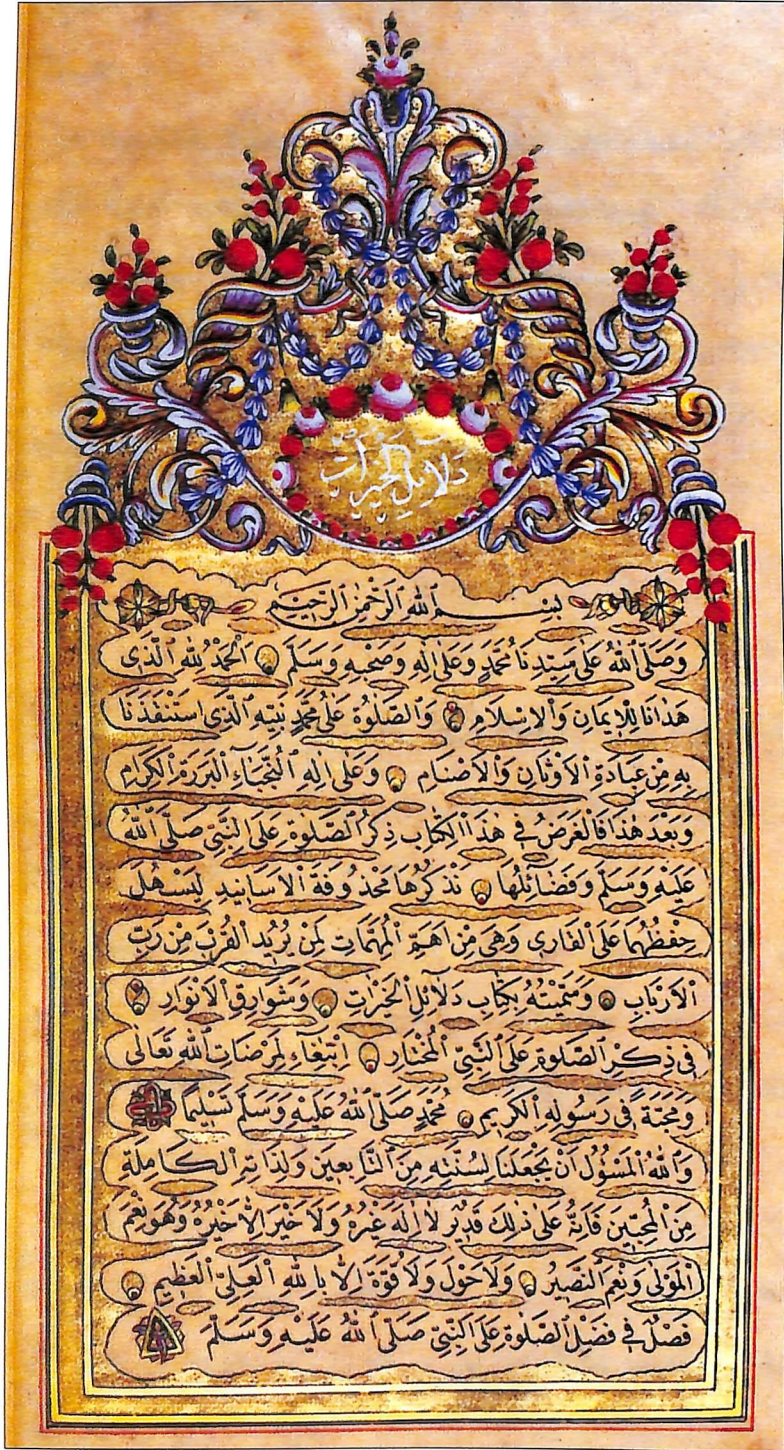 دَلَائِلُ الْخَيْرَاتِ
بِسْمِ اللّٰهِ الرَّحْمٰنِ الرَّحِيمِ
وَصَلَّى اللّٰهُ عَلٰى سَيِّدِنَا مُحَمَّدٍ وَعَلٰى اٰلِهِ وَصَحْبِهِ وَسَلَّمَ اَلْحَمْدُ لِلّٰهِ الَّذِى
هَدَانَا لِلْاِيمَانِ وَالْاِسْلَامِ وَالصَّلٰوةُ عَلٰى مُحَمَّدٍ نَبِيِّهِ الَّذِى اسْتَنْقَذَنَا
بِهِ مِنْ عِبَادَةِ الْاَوْثَانِ وَالْاَصْنَامِ وَعَلٰى اٰلِهِ النُّجَبَاءِ الْبَرَرَةِ الْكِرَامِ
وَبَعْدَ هٰذَا فَالْغَرَضُ فِى هٰذَا الْكِتَابِ ذِكْرُ الصَّلٰوةِ عَلَى النَّبِىِّ صَلَّى اللّٰهُ
عَلَيْهِ وَسَلَّمَ وَفَضَائِلُهَا نَذْكُرُهَا مَحْذُوفَةَ الْاَسَانِيدِ لِيَسْهُلَ
حِفْظُهَا عَلَى الْقَارِى وَهِىَ مِنْ اَهَمِّ الْمُهِمَّاتِ لِمَنْ يُرِيدُ الْقُرْبَ مِنْ رَبِّ
الْاَرْبَابِ وَسَمَّيْتُهُ بِكِتَابِ دَلَائِلِ الْخَيْرَاتِ وَشَوَارِقِ الْاَنْوَارِ
فِى ذِكْرِ الصَّلٰوةِ عَلَى النَّبِىِّ الْمُخْتَارِ اِبْتِغَاءً لِمَرْضَاتِ اللّٰهِ تَعَالٰى
وَمَحَبَّةً فِى رَسُولِهِ الْكَرِيمِ مُحَمَّدٍ صَلَّى اللّٰهُ عَلَيْهِ وَسَلَّمَ تَسْلِيمًا
وَاللّٰهُ الْمَسْؤُلُ اَنْ يَجْعَلَنَا لِسُنَّتِهِ مِنَ التَّابِعِينَ وَلِذَاتِهِ الْكَامِلَةِ
مِنَ الْمُحِبِّينَ فَاِنَّهُ عَلٰى ذٰلِكَ قَدِيرٌ لَا اِلٰهَ غَيْرُهُ وَلَا خَيْرَ اِلَّا خَيْرُهُ وَهُوَ نِعْمَ
الْمَوْلٰى وَنِعْمَ النَّصِيرُ وَلَا حَوْلَ وَلَا قُوَّةَ اِلَّا بِاللّٰهِ الْعَلِىِّ الْعَظِيمِ
فَصْلٌ فِى فَضْلِ الصَّلٰوةِ عَلَى النَّبِىِّ صَلَّى اللّٰهُ عَلَيْهِ وَسَلَّمَ